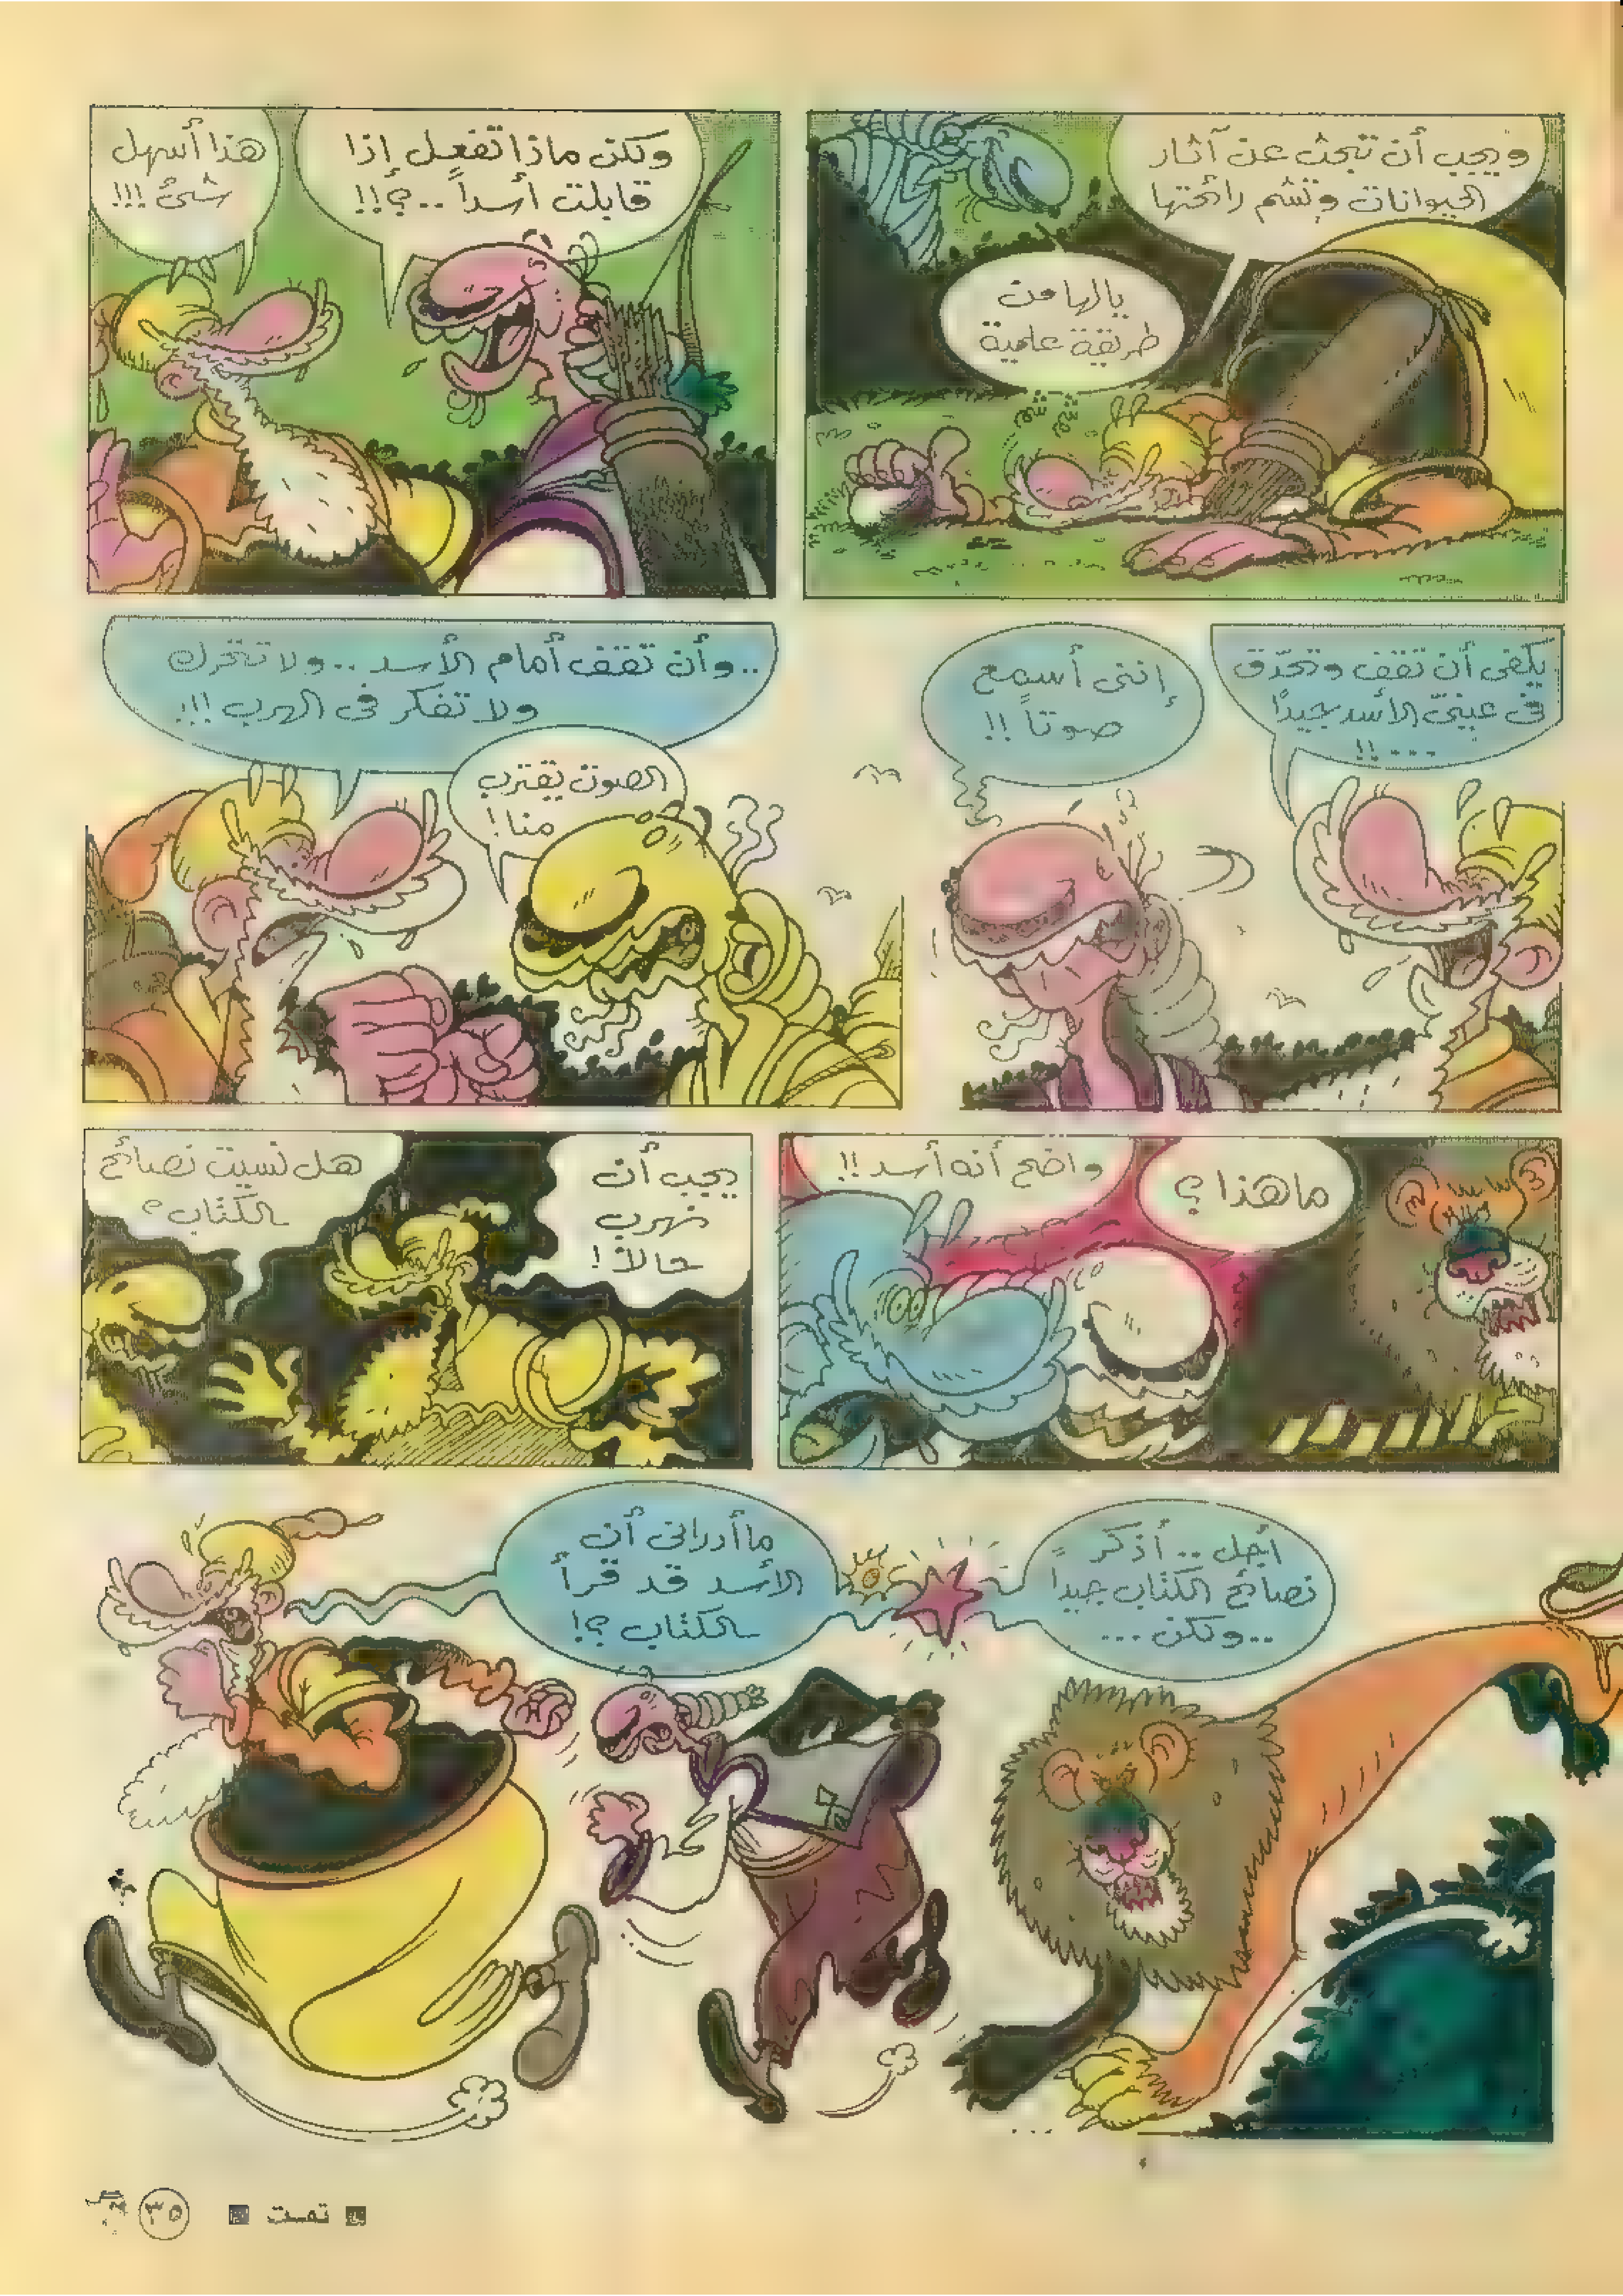 ويجب أن تبحث عن آثار
الحيوانات وتشم رائحتها
يالها من
طريقة علمية
ولكن ماذا تفعل إذا
قابلت أسداً ..؟!!
هذا أسهل
شئ !!!
يكفى أن تقف وتحدّق
فى عينىّ الأسد جيداً
... !!
إننى أسمع
صوتاً !!
..وأن تقف أمام الأسد ..ولا تتحرك
ولا تفكر فى الهرب !!!
الصوت يقترب
منا !
ما هذا ؟
واضح أنه أسد !!
يجب أن
نهرب
حالاً !
هل نسيت نصائح
الكتاب ؟
أجل .. أذكر
نصائح الكتاب جيداً
..ولكن ...
ما أدرانى أن
الأسد قد قرأ
الكتاب ؟!
تمت
٣٥